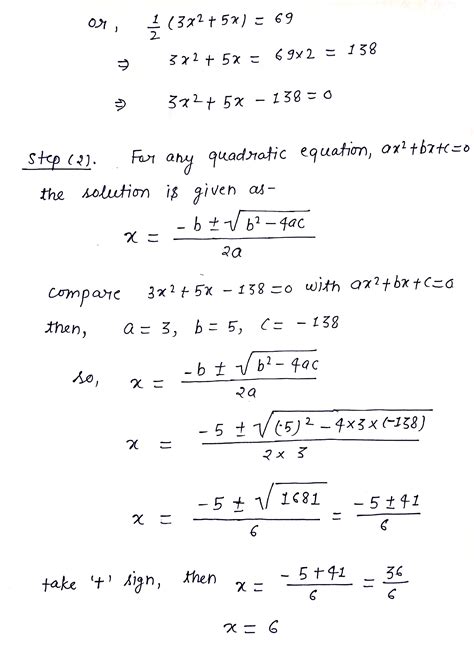 or, 1/2 (3x² + 5x) = 69
⇒ 3x² + 5x = 69×2 = 138
⇒ 3x² + 5x - 138 = 0
Step (2). For any quadratic equation, ax² + bx + c = 0
the solution is given as-
x = (-b ± √(b² - 4ac))/2a
compare 3x² + 5x - 138 = 0 with ax² + bx + c = 0
then, a = 3, b = 5, c = -138
so, x = (-b ± √(b² - 4ac))/2a
x = (-5 ± √((5)² - 4×3×(-138)))/(2×3)
x = (-5 ± √1681)/6 = (-5 ± 41)/6
take '+' sign, then x = (-5 + 41)/6 = 36/6
x = 6